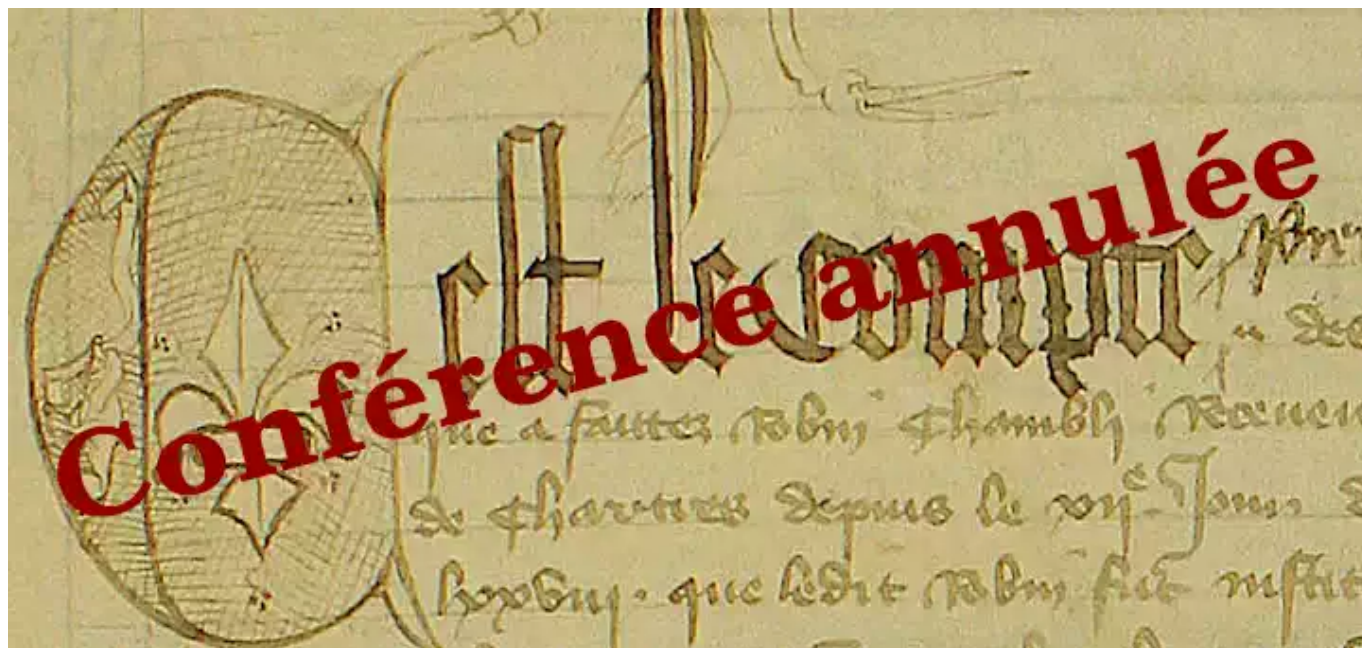 Conférence annulée
Cest le Compte
que a faittes Robin Chambli Receveu
de Chartres depuis le xvije Jour d
lxxviij. que ledit Robin fut instit